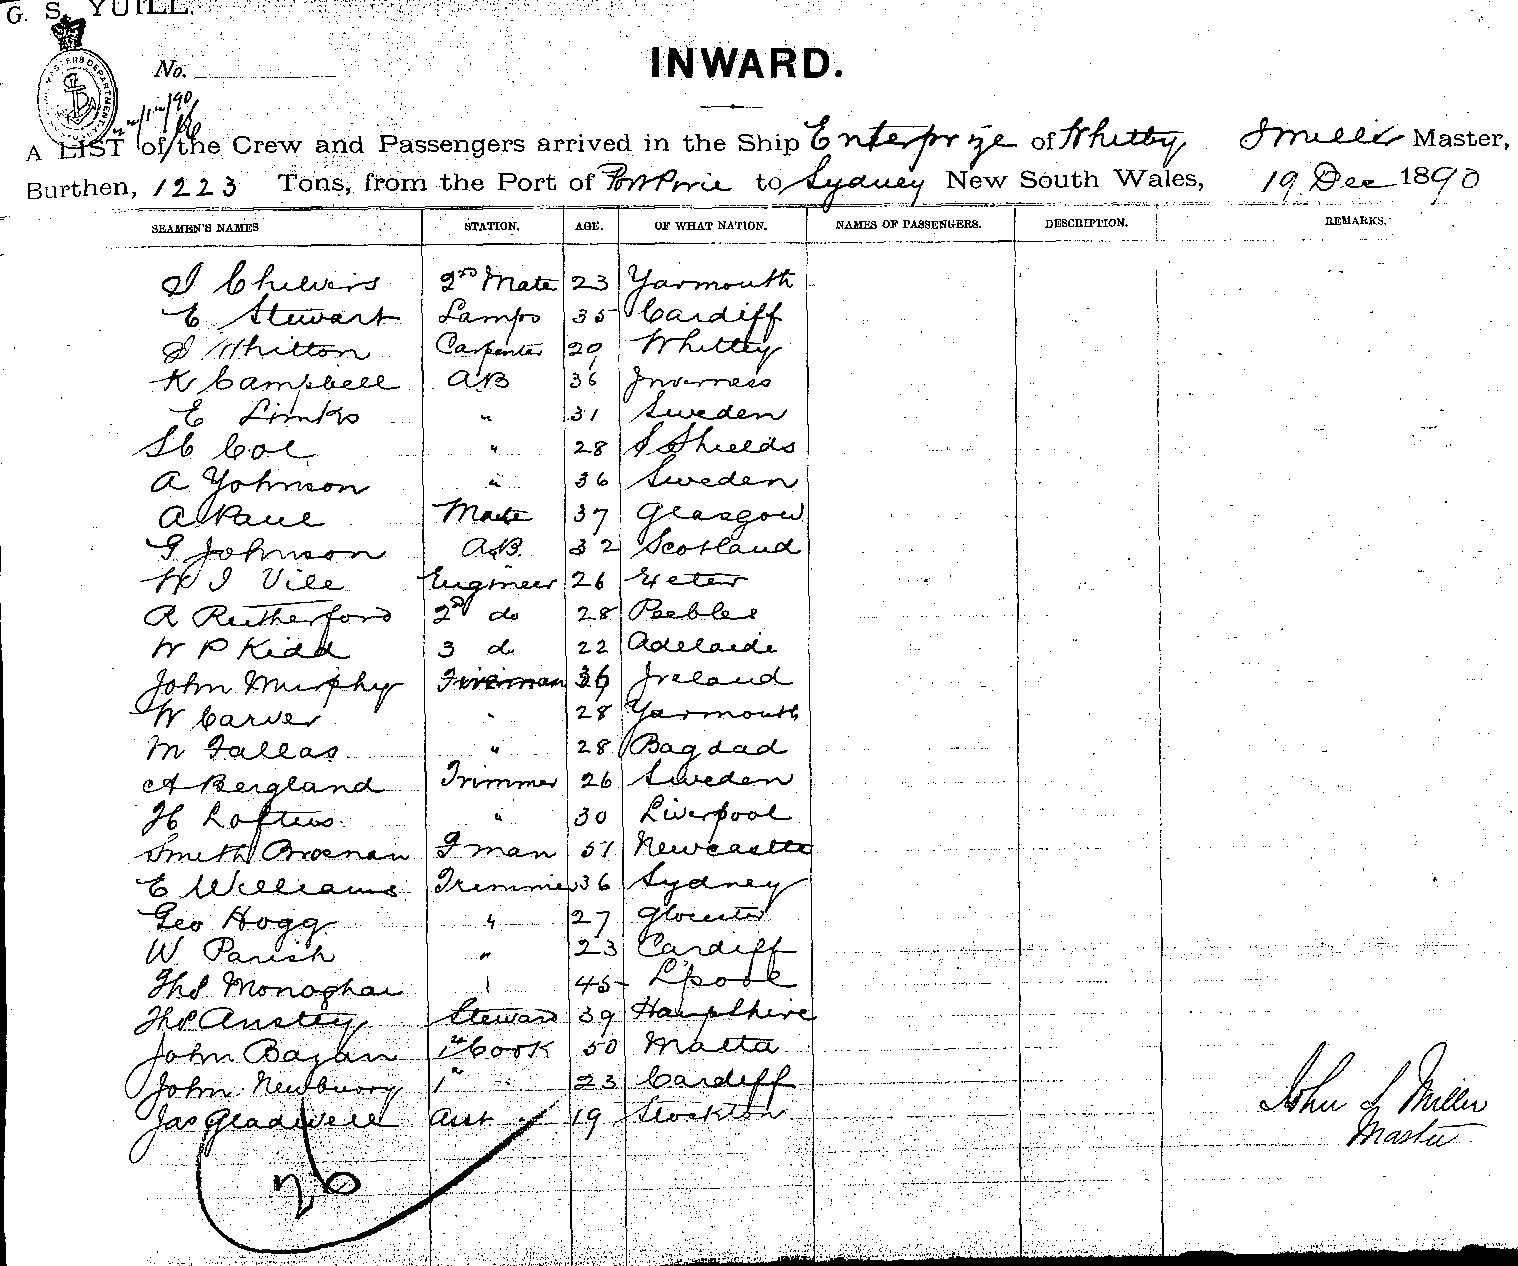 G. S. YUILL
INWARD.
No.
A LIST of the Crew and Passengers arrived in the Ship Enterprize of Whitby J Miller Master,
Burthen, 1223 Tons, from the Port of Port Pirie to Sydney New South Wales, 19 Dec 1890
SEAMEN'S NAMES STATION. AGE. OF WHAT NATION. NAMES OF PASSENGERS. DESCRIPTION. REMARKS.
J Chilvers 2nd Mate 23 Yarmouth
E Stewart Lamps 35 Cardiff
J Whitton Carpenter 20 Whitby
K Campbell AB 36 Inverness
E Limks " 31 Sweden
H Col " 28 S Shields
A Yohnson " 36 Sweden
A Paul Mate 37 Glasgow
G Johnson AB. 32 Scotland
W J Vile Engineer 26 Exeter
R Rutherford 2nd do 28 Peebles
W P Kidd 3 d 22 Adelaide
John Murphy Fireman 36 Ireland
W Carver " 28 Yarmouth
M Fallas " 28 Bagdad
A Bergland Trimmer 26 Sweden
H Loftus " 30 Liverpool
Smith Brosnan F man 51 Newcastle
E Williams Trimmer 36 Sydney
Geo Hogg " 27 Glocester
W Parish " 23 Cardiff
Thos Monoghan " 45 Lpool
Thos Anstey Steward 39 Hampshire
John Bajan 1st Cook 50 Malta
John Newbury 1 " 23 Cardiff
Jas Gladwell Asst " 19 Stockton
John S Miller
Master
26